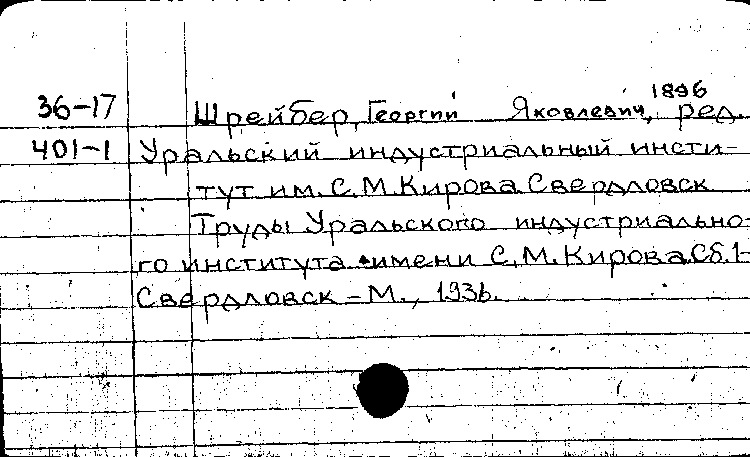 36-17 Шрейбер, Георгий Яковлевич, 1896 ред.
401-1 Уральский индустриальный инсти-
тут им. С.М.Кирова.Свердловск
Труды Уральского индустриально-
го института имени С.М.Кирова.Сб.1-
Свердловск-М., 1936.